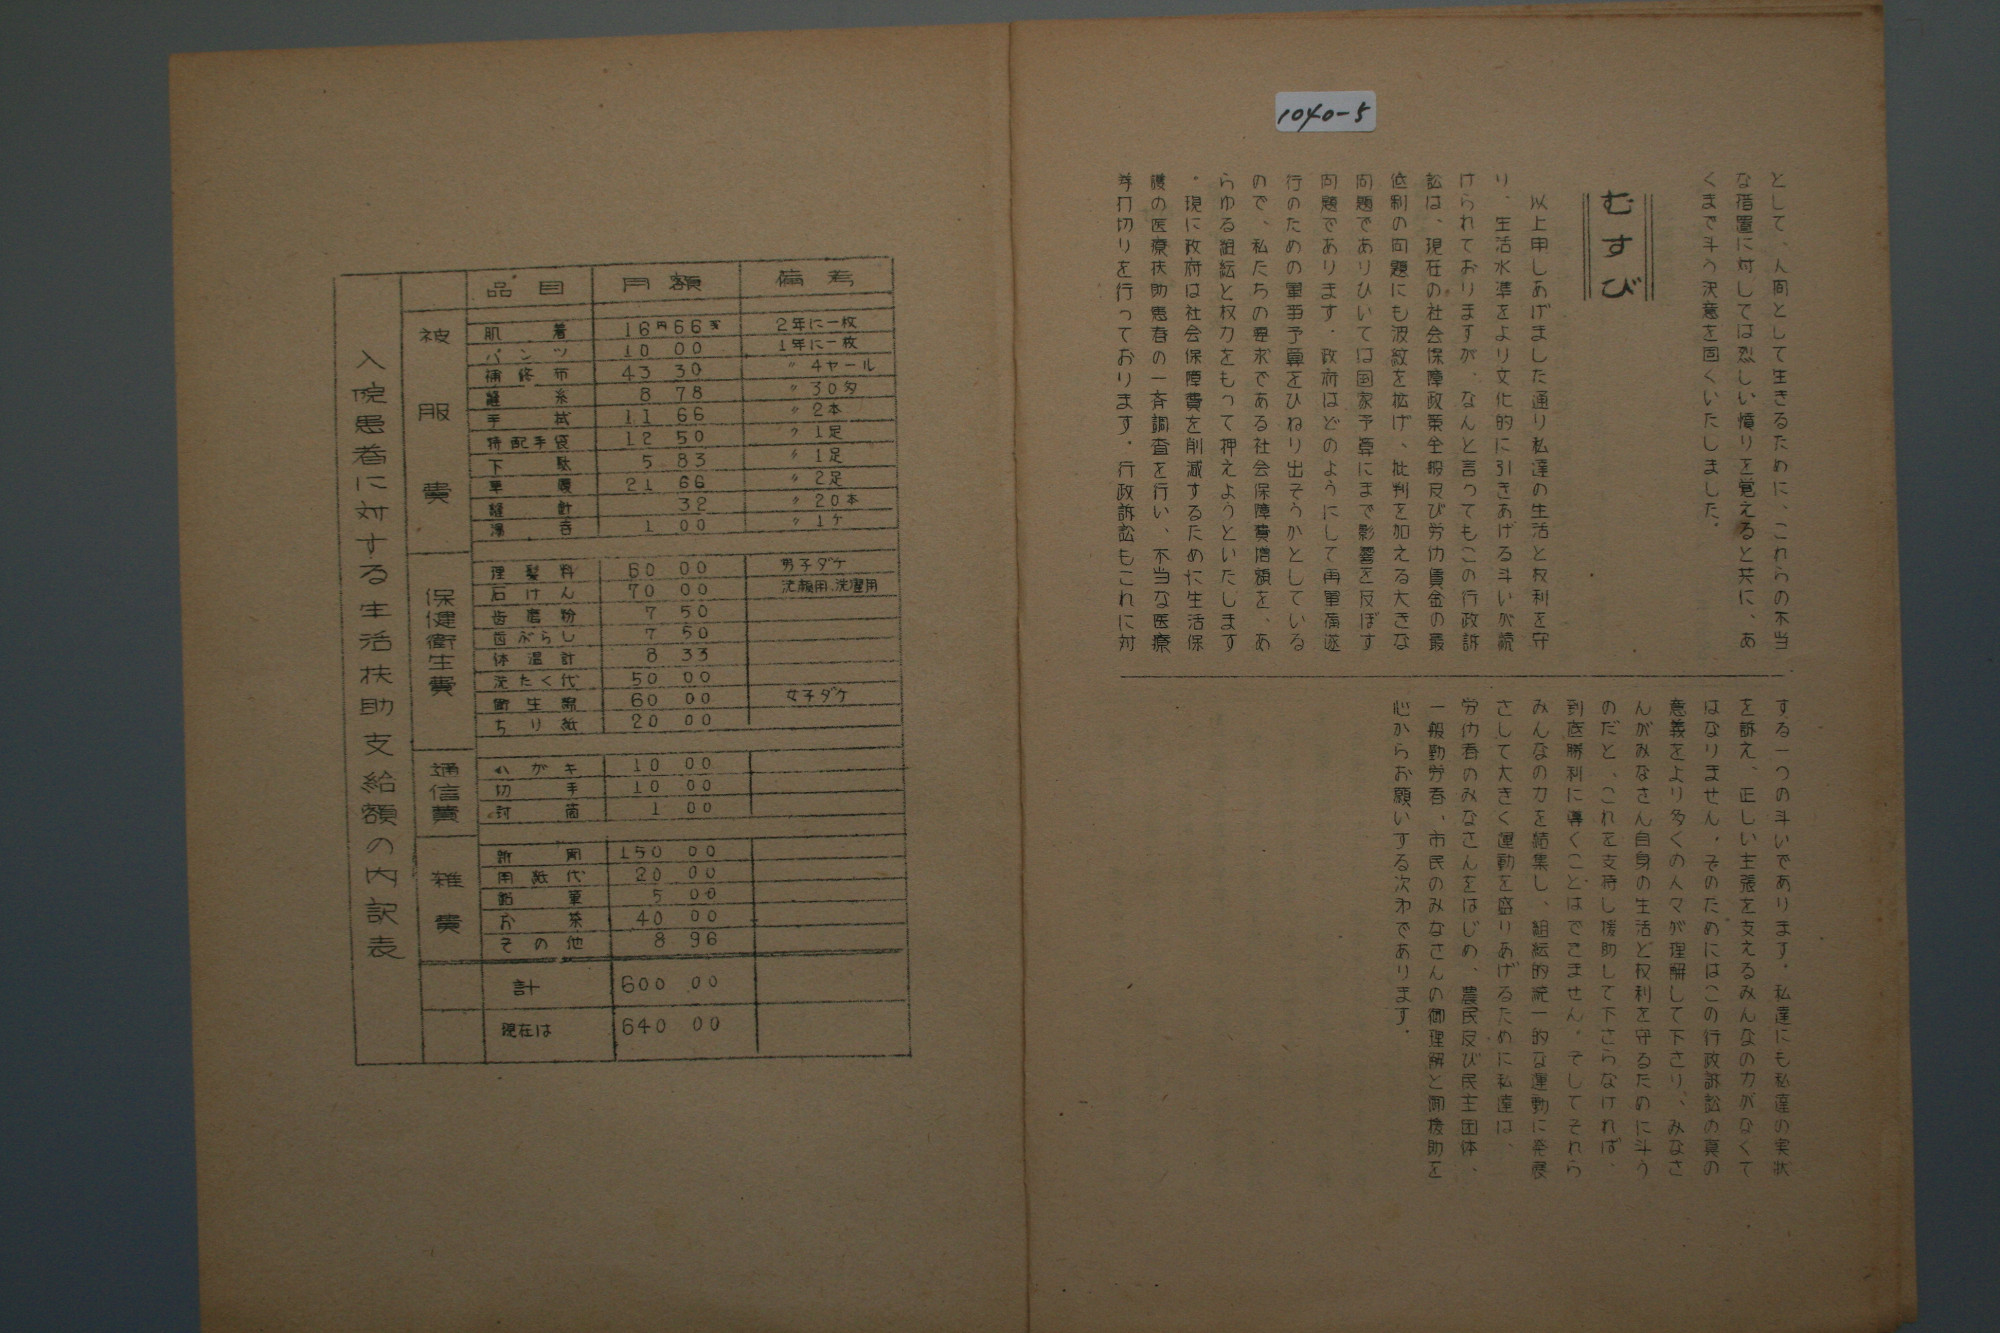 1040-5
として、人間として生きるために、これらの不当
な措置に対しては烈しい憤りを覚えると共に、あ
くまで斗う決意を固くいたしました。
むすび
以上申しあげました通り私達の生活と权利を守
り、生活水準をより文化的に引きあげる斗いが続
けられておりますが、なんと言ってもこの行政訴
訟は、現在の社会保障政策全般及び労仂賃金の最
低制の問題にも波紋を拡げ、批判を加える大きな
問題でありひいては国家予算にまで影響を及ぼす
問題であります。政府はどのようにして再軍備遂
行のための軍事予算をひねり出そうかとしている
ので、私たちの要求である社会保障費増額を、あ
らゆる組織と权力をもって押えようといたします
。現に政府は社会保障費を削減するために生活保
護の医療扶助患者の一斉調査を行い、不当な医療
券打切りを行っております。行政訴訟もこれに対
する一つの斗いであります。私達にも私達の実状
を訴え、正しい主張を支えるみんなの力がなくて
はなりません。そのためにはこの行政訴訟の真の
意義をより多くの人々が理解して下さり、みなさ
んがみなさん自身の生活と权利を守るために斗う
のだと、これを支持し援助して下さらなければ、
到底勝利に導くことはできません。そしてそれら
みんなの力を結集し、組織的統一的な運動に発展
さして大きく運動を盛りあげるために私達は、
労仂者のみなさんをはじめ、農民及び民主団体、
一般勤労者、市民のみなさんの御理解と御援助を
心からお願いする次才であります。
入院患者に対する生活扶助支給額の内訳表
品目 月額 備考
被服費
肌着 16円66銭 2年に一枚
パンツ 10 00 1年に一枚
補修布 43 30 〃 4ヤール
縫糸 8 78 〃 30匁
手拭 11 66 〃 2本
特配手袋 12 50 〃 1足
下駄 5 83 〃 1足
草履 21 66 〃 2足
縫針 32 〃 20本
湯呑 1 00 〃 1ケ
保健衛生費
理髪料 60 00 男子ダケ
石けん 70 00 洗顔用、洗濯用
歯磨粉 7 50
歯ぶらし 7 50
体温計 8 33
洗たく代 50 00
衛生綿 60 00 女子ダケ
ちり紙 20 00
通信費
ハガキ 10 00
切手 10 00
封筒 1 00
雑費
新聞 150 00
用紙代 20 00
鉛筆 5 00
お茶 40 00
その他 8 96
計 600 00
現在は 640 00